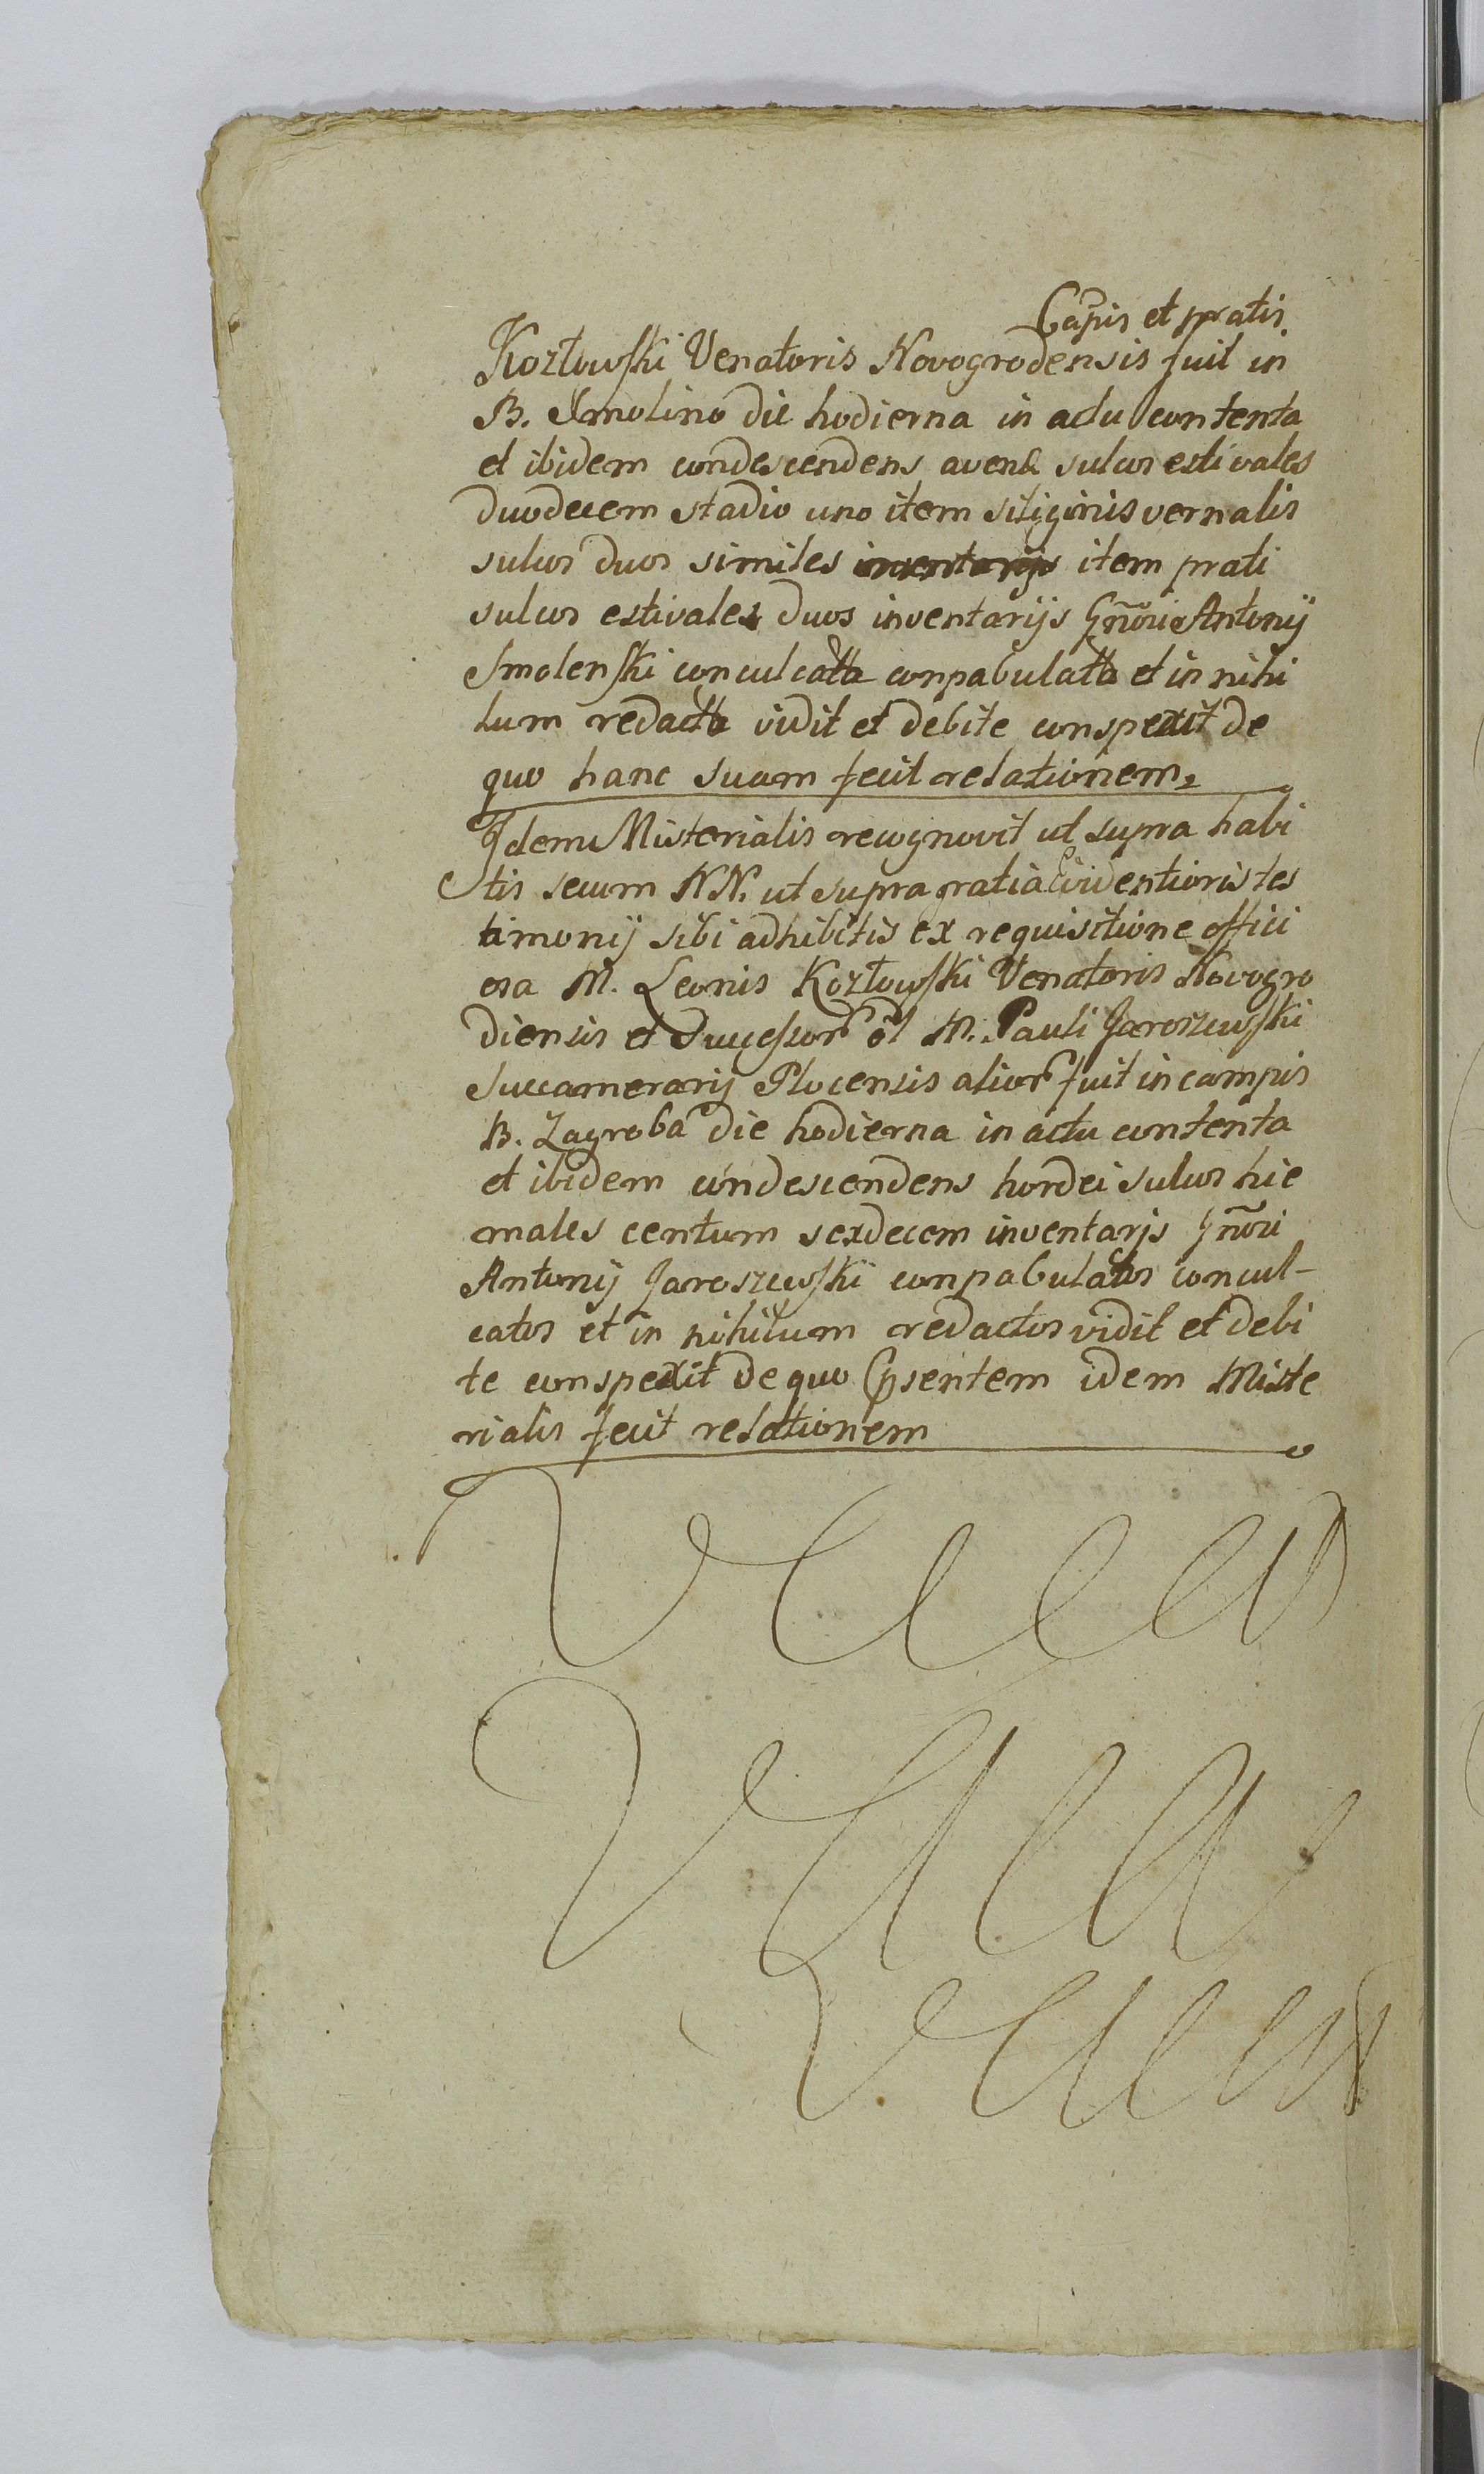 Cãpis et pratis
Kozłowski Venatoris Novogrodensis fuit in
B. Smolino die hodierna in actu contenta
et ibidem condescendens avenæ sulcos estivales
duodecem stadio uno item siliginis vernalis
sulcos duos similes inventarijs item prati
sulcos estivales duos inventarijs Gñosi Antonij
Smolenski conculcatta conpabulatta et in nihi
lum redacta vidit et debite conspexit de
quo hanc suam fecit relationem
Idem Misterialis recognovit ut supra habi
tis secum NN. ut supra gratia Evidentioris tes
timonij sibi adhibitis ex requisitione offici
osa M. Leonis Kozłowski Venatoris Novogro
diensis et Successor ol M. Pauli Jaroszewski
Succamerarij Plocensis alior fuit in campis
B. Zagroba die hodierna in actu contenta
et ibidem condescendens hordei sulcos hie
males centum sexdecem inventarjs Gñosi
Antonij Jaroszewski conpabulatos concul-
catos et in nihilum redactos vidit et debi
te conspexit de quo Psentem idem Miste
rialis fecit relationem